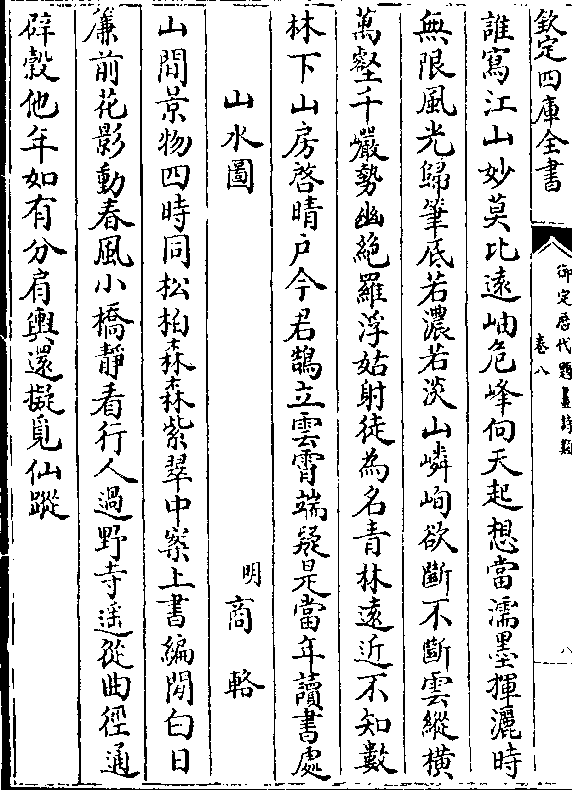 欽定四庫全書
御定厯代題畫詩類
卷八
八
誰寫江山妙莫比遠岫危峰向天起想當濡墨揮灑時
無限風光歸筆底若濃若淡山嶙峋欲斷不斷雲縱橫
萬壑千巖勢幽絶羅浮姑射徒為名青林遠近不知數
林下山房啓晴户今君鵠立雲霄端疑是當年讀書處
山水圖
明商輅
山間景物四時同松柏森森紫翠中案上書編閒白日
簾前花影動春風小橋靜看行人過野寺遥從曲徑通
辟穀他年如有分肩輿還擬覓仙蹤